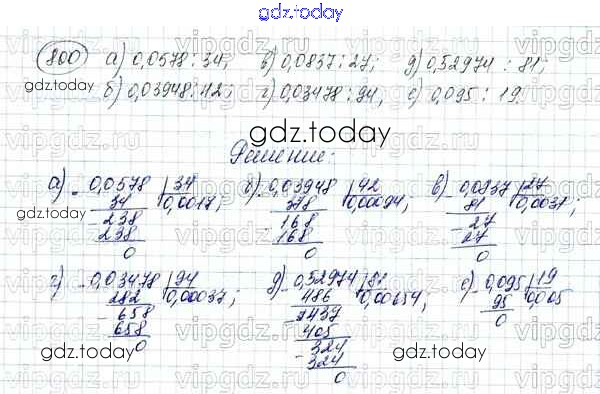 gdz.today
800 а) 0,0578 : 34; в) 0,0837 : 27; д) 0,52974 : 81;
gdz.today б) 0,03948 : 42; г) 0,03478 : 94, е) 0,095 : 19
gdz.today
Решение:
а) 0,0578 | 34 б) 0,03948 | 42 в) 0,0837 | 27
34 0,0017; 378 0,00094; 81 0,0031;
gdz.today
- 238 - 168 - 27
238 168 27
0 0 0
г) - 0,03478 | 94 д) - 0,52974 | 81 е) - 0,095 | 19
282 0,00037; 486 0,00654; 95 0,005
- 658 - 437 0
658 405
0 - 324
gdz.today 324 gdz.today
0